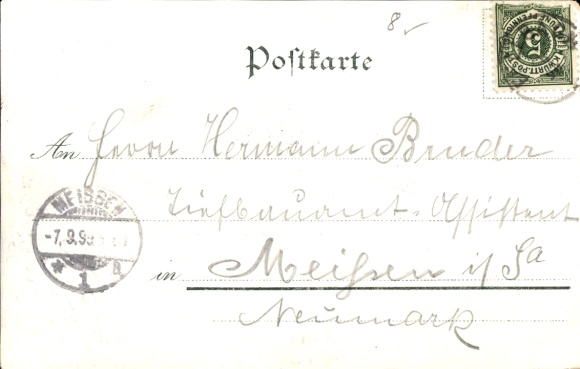 8
Postkarte
K. WÜRTT. POST
5
An Herrn Hermann Bruder
Tiefbauamt-Assistent
MEISSEN
-7.9.99
* 1 a
in Meißen i/Sa
Neumark